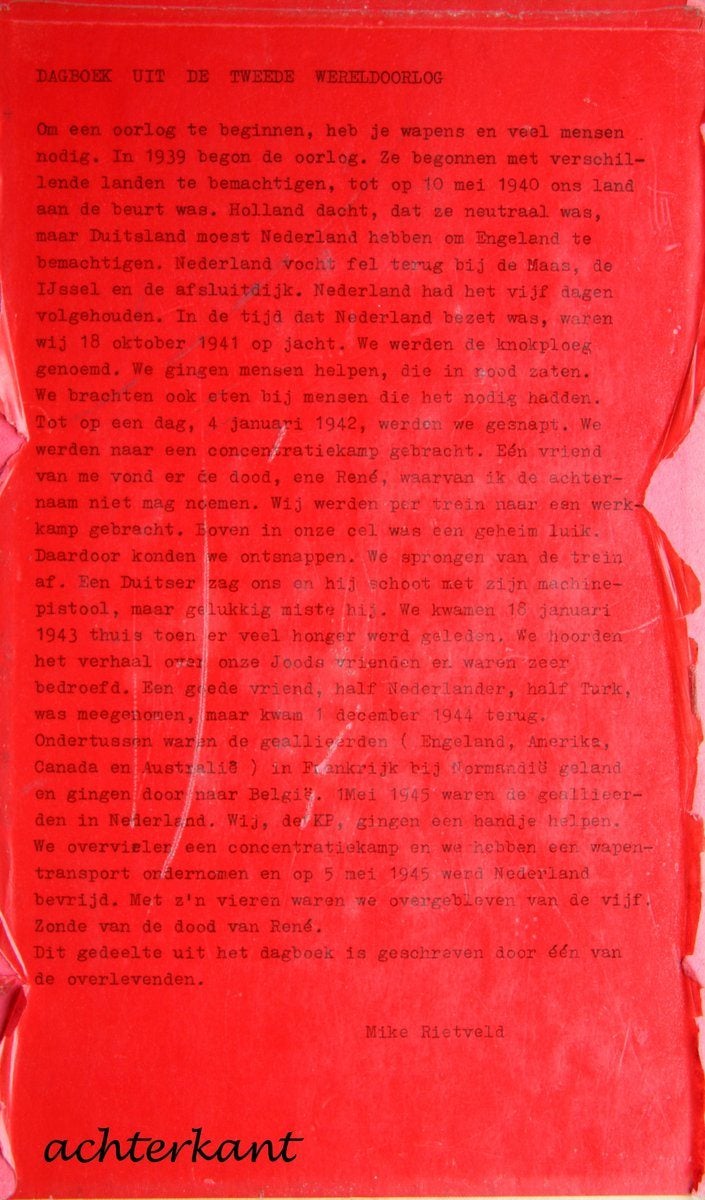 DAGBOEK UIT DE TWEEDE WERELDOORLOG
Om een oorlog te beginnen, heb je wapens en veel mensen
nodig. In 1939 begon de oorlog. Ze begonnen met verschil-
lende landen te bemachtigen, tot op 10 mei 1940 ons land
aan de beurt was. Holland dacht, dat ze neutraal was,
maar Duitsland moest Nederland hebben om Engeland te
bemachtigen. Nederland vocht fel terug bij de Maas, de
IJssel en de afsluitdijk. Nederland had het vijf dagen
volgehouden. In de tijd dat Nederland bezet was, waren
wij 18 oktober 1941 op jacht. We werden de knokploeg
genoemd. We gingen mensen helpen, die in nood zaten.
We brachten ook eten bij mensen die het nodig hadden.
Tot op een dag, 4 januari 1942, werden we gesnapt. We
werden naar een concentratiekamp gebracht. Eén vriend
van me vond er de dood, ene René, waarvan ik de achter-
naam niet mag noemen. Wij werden per trein naar een werk-
kamp gebracht. Boven in onze cel was een geheim luik.
Daardoor konden we ontsnappen. We sprongen van de trein
af. Een Duitser zag ons en hij schoot met zijn machine-
pistool, maar gelukkig miste hij. We kwamen 18 januari
1943 thuis toen er veel honger werd geleden. We hoorden
het verhaal over onze Joods vrienden en waren zeer
bedroefd. Een goede vriend, half Nederlander, half Turk,
was meegenomen, maar kwam 1 december 1944 terug.
Ondertussen waren de geallieerden ( Engeland, Amerika,
Canada en Australië ) in Frankrijk bij Normandië geland
en gingen door naar België. 1Mei 1945 waren de geallieer-
den in Nederland. Wij, de KP, gingen een handje helpen.
We overvielen een concentratiekamp en we hebben een wapen-
transport ondernomen en op 5 mei 1945 werd Nederland
bevrijd. Met z'n vieren waren we overgebleven van de vijf.
Zonde van de dood van René.
Dit gedeelte uit het dagboek is geschreven door één van
de overlevenden.
Mike Rietveld
achterkant